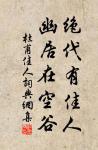 絶代有佳人
幽居在空谷
杜甫佳人詞典網集